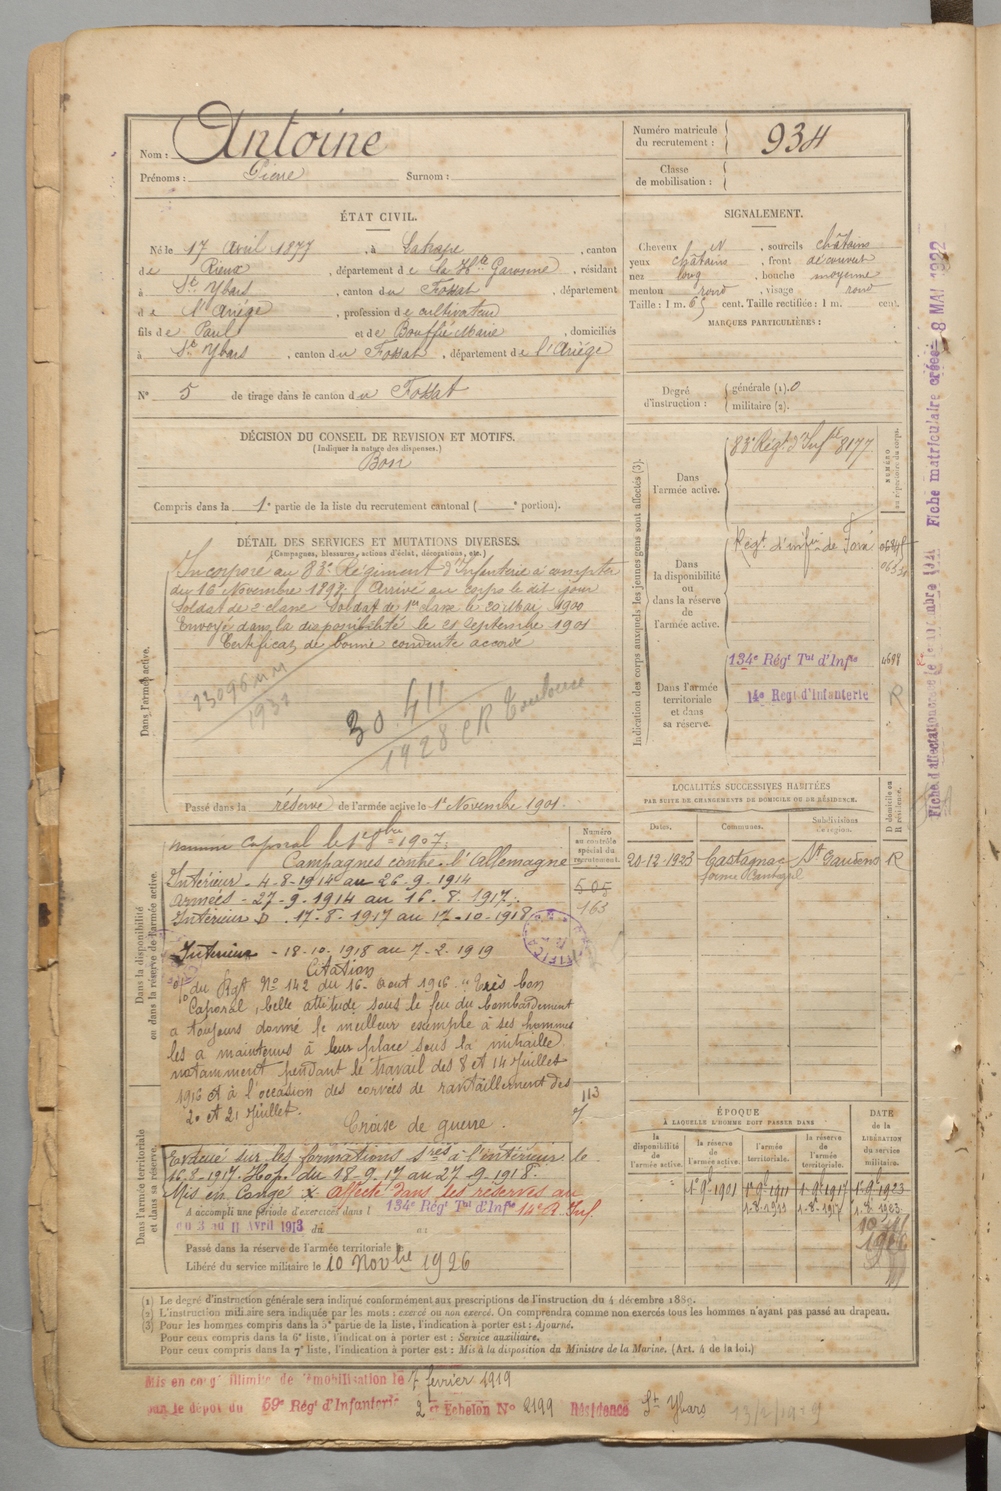 Nom : Antoine
Prénoms : Pierre Surnom :
Numéro matricule du recrutement : 934
Classe de mobilisation :
ÉTAT CIVIL.
Né le 17 Avril 1877, à Latrape, canton
de Rieux, département de la Hte Garonne, résidant
à St Ybars, canton du Fossat, département
de l'Ariège, profession de cultivateur
fils de Paul et de Bouffié Marie, domiciliés
à St Ybars, canton du Fossat, département de l'Ariège
N° 5 de tirage dans le canton du Fossat
SIGNALEMENT.
Cheveux N, sourcils châtains
yeux châtains, front découvert
nez long, bouche moyenne
menton rond, visage rond
Taille : 1 m. 65 cent. Taille rectifiée : 1 m. cent.
MARQUES PARTICULIÈRES :
Degré d'instruction : générale (1). 0
militaire (2).
DÉCISION DU CONSEIL DE REVISION ET MOTIFS.
(Indiquer la nature des dispenses.)
Bon
Compris dans la 1e partie de la liste du recrutement cantonal ( e portion).
DÉTAIL DES SERVICES ET MUTATIONS DIVERSES.
(Campagnes, blessures, actions d'éclat, décorations, etc.)
Dans l'armée active.
Incorporé au 83e Régiment d'Infanterie à compter
du 16 Novembre 1898. Arrivé au corps le dit jour
Soldat de 2e classe. Soldat de 1re classe le 20 Mai 1900
Envoyé dans la disponibilité le 21 Septembre 1901
Certificat de bonne conduite accordé
30.411
1928 CR Toulouse
Passé dans la réserve de l'armée active le 1er Novembre 1901.
Dans la disponibilité ou dans la réserve de l'armée active.
Nommé Caporal le 1er 8bre 1907.
Campagnes contre l'Allemagne
Intérieur - 4-8-1914 au 26-9-1914
Armées - 27-9-1914 au 16-8-1917.
Intérieur D 17-8-1917 au 17-10-1918
Intérieur - 18-10-1918 au 7-2-1919
Citation
du Rgt No 142 du 16 Août 1916 "Très bon
Caporal, belle attitude sous le feu du bombardement
a toujours donné le meilleur exemple à ses hommes
les a maintenus à leur place sous la mitraille
notamment pendant le travail des 8 et 14 Juillet
1916 et à l'occasion des corvées de ravitaillement des
20 et 21 Juillet.
Croix de guerre.
Numéro au contrôle spécial du recrutement.
505
163
113
Dans l'armée territoriale et dans sa réserve.
Evacué sur les formations sres à l'intérieur le
16-8-1917. Hop. du 18-9-17 au 27-9-1918.
Mis en Congé x affecté dans les réserves au
A accompli une période d'exercices dans l 134e Régt Tal d'Infie 14e R. Inf.
du 3 au 11 Avril 1913 du au
Passé dans la réserve de l'armée territoriale le
Libéré du service militaire le 10 Novbre 1926
Indication des corps auxquels les jeunes gens sont affectés (3).
NUMÉRO au répertoire du corps.
Dans l'armée active.
83e Régt d'Infie 8177
Dans la disponibilité ou dans la réserve de l'armée active.
Régt d'infie de Foix
Dans l'armée territoriale et dans sa réserve.
134e Régt Tal d'Infie 4698
14e Régt d'Infanterie R
LOCALITÉS SUCCESSIVES HABITÉES
PAR SUITE DE CHANGEMENTS DE DOMICILE OU DE RÉSIDENCE.
D domicile ou R résidence.
Dates. Communes. Subdivisions de région.
20-12-1923 Castagnac St Gaudens R
ÉPOQUE
À LAQUELLE L'HOMME DOIT PASSER DANS
la disponibilité de l'armée active.
la réserve de l'armée active.
l'armée territoriale.
la réserve de l'armée territoriale.
DATE de la LIBÉRATION du service militaire.
1er 9bre 1901 1er 9bre 1911 1er 9bre 1917 1er 9bre 1923
1-8-1911 1-8-1917 1-8-1923
(1) Le degré d'instruction générale sera indiqué conformément aux prescriptions de l'instruction du 4 décembre 1889.
(2) L'instruction militaire sera indiquée par les mots : exercé ou non exercé. On comprendra comme non exercés tous les hommes n'ayant pas passé au drapeau.
(3) Pour les hommes compris dans la 5e partie de la liste, l'indication à porter est : Ajourné.
Pour ceux compris dans la 6e liste, l'indication à porter est : Service auxiliaire.
Pour ceux compris dans la 7e liste, l'indication à porter est : Mis à la disposition du Ministre de la Marine. (Art. 4 de la loi.)
Mis en congé illimité de démobilisation le 7 février 1919
par le dépôt du 59e Régt d'Infanterie 2e Echelon No 2199 Résidence St Ybars
Fiche matriculaire créée 8 MAI 1922